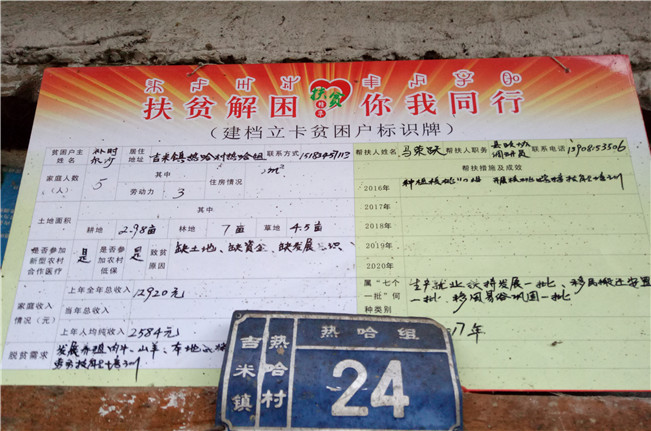 扶贫解困 扶贫 你我同行
（建档立卡贫困户标识牌）
贫困户主姓名 居住地址 吉米镇热哈村热哈组 联系方式
家庭人数（人） 5 其中 劳动力 3 住房情况 m²
土地面积 其中 耕地 2.98亩 林地 7亩 草地 4.5亩
是否参加新型农村合作医疗 是 是否参加农村低保 是 致贫原因 缺土地、缺资金、缺发展
家庭收入情况（元） 上年全年总收入 12920元
当年总收入
上年人均纯收入 2584元
脱贫需求 发展养殖肉牛、山羊、本地
帮扶人姓名 马荣跃 帮扶人职务 县政协调研员 联系电话
帮扶措施及成效
2016年
2017年
2018年
2019年
2020年
属“七个一批”何种类别 生产就业扶持发展一批、移民搬迁安置一批、移风易俗巩固一批
7年
热哈组
吉米镇
热哈村
24